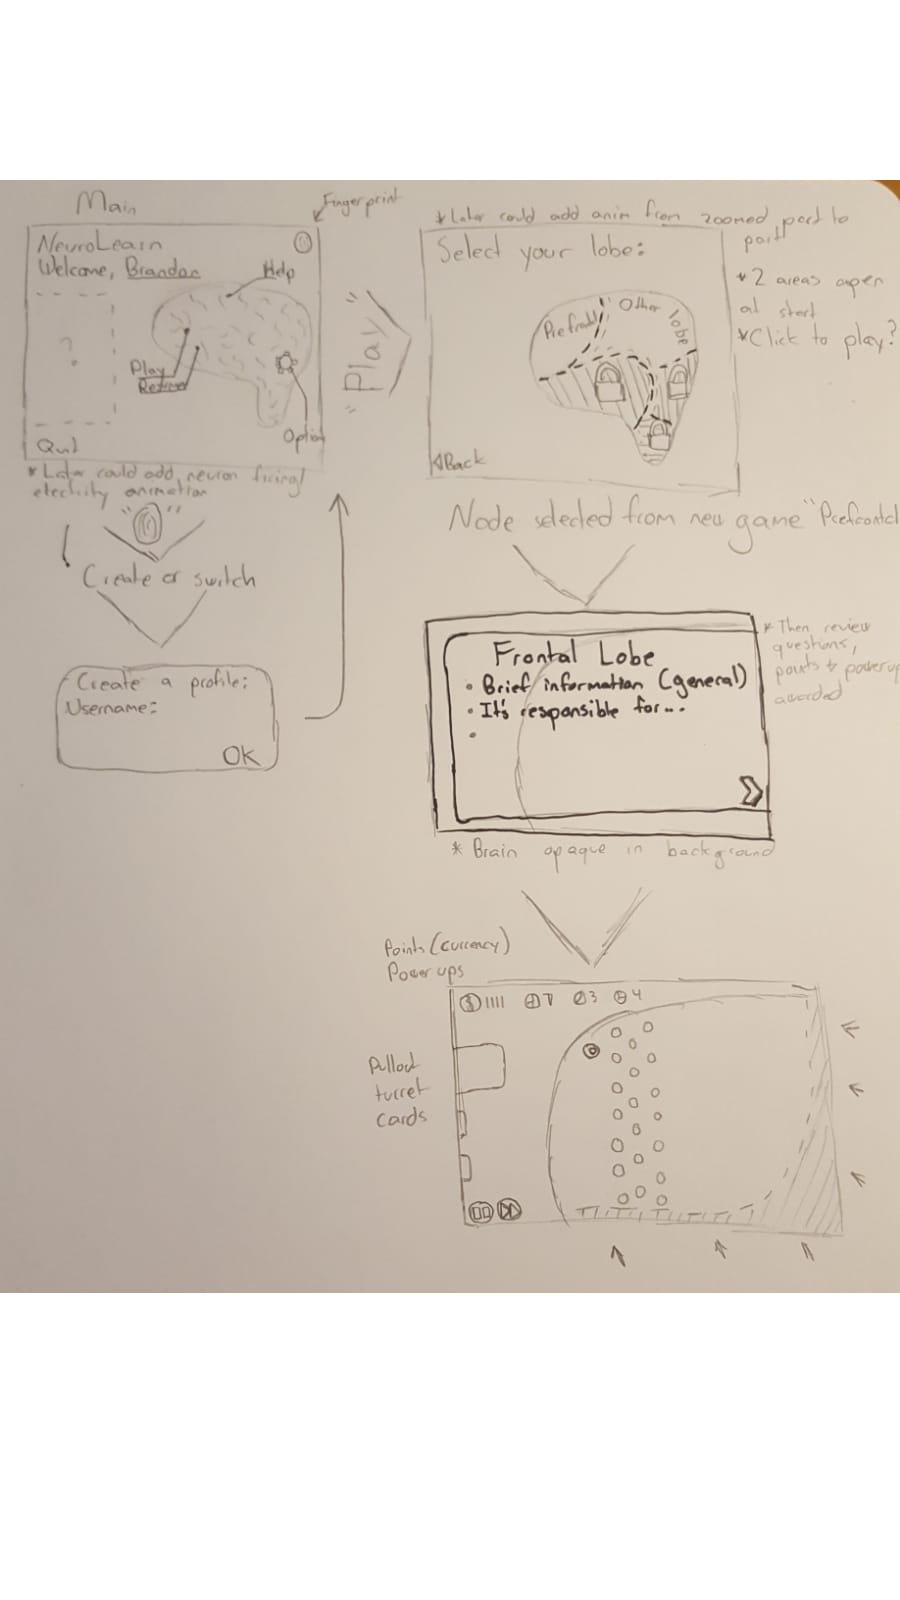 Main
Fingerprint
NeuroLearn
Welcome, Brandon
Help
?
Play
Option
Quit
* Later could add neuron firing/
electricity animation
" "
Create or switch
Create a profile:
Username:
OK
"Play"
* Later could add anim from zoomed part to
part
Select your lobe:
Prefrontal
Other lobe
Back
* 2 areas open
at start
* Click to play?
Node selected from new game "Prefrontal
Frontal Lobe
• Brief information (general)
• It's responsible for...
•
* Then review
questions,
points & powerup
awarded
* Brain opaque in background
Points (currency)
Power ups
$ 1111 7 3 4
Pullout
turret
cards